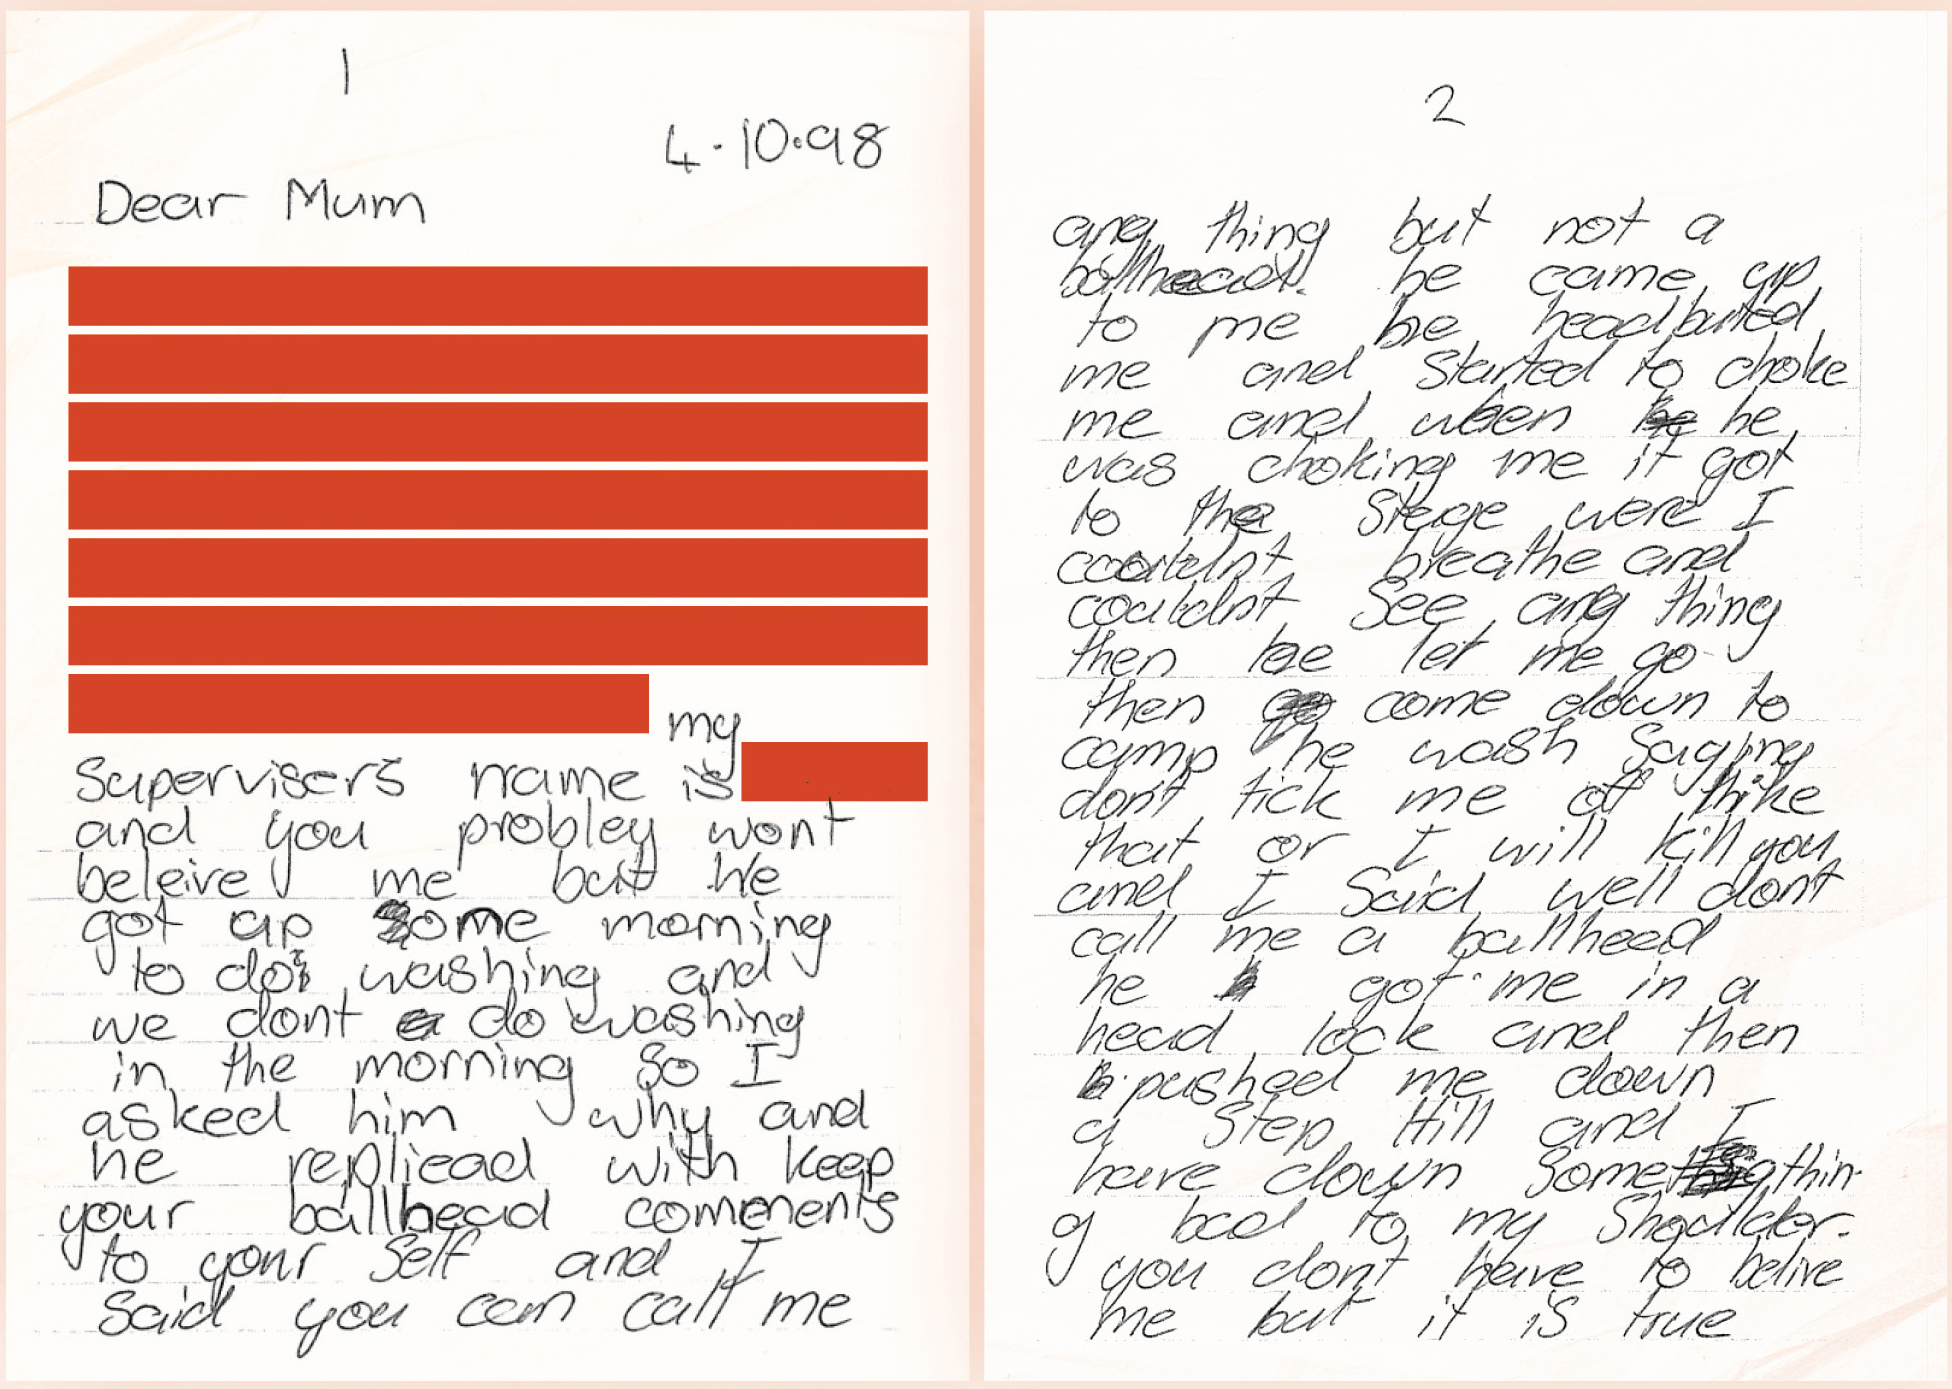 1
4.10.98
Dear Mum
my
Supervisers name is
and you probley wont
beleive me but We
got up some morning
to do washing and
we dont do washing
in the morning So I
asked him why and
he repliead with keep
your ballhead comments
to your Self and I
Said you can call me
2
any thing but not a
ballhead. he came up
to me he headbutted
me and Started to choke
me and when he he
was choking me it got
to the Stage were I
couldnt breathe and
couldnt See any thing
then he let me go
then come down to
camp he wash Saying
dont tick me of like
that or I will kill you
and I Said well dont
call me a ballhead
he got me in a
head lock and then
pushed me down
a Step Hill and I
have down Somethin
g bad to my Shoulder.
you dont have to belive
me but it is true